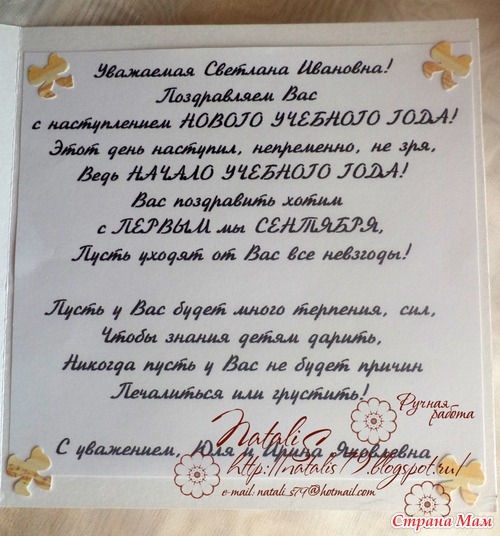 Уважаемая Светлана Ивановна!
Поздравляем Вас
с наступлением НОВОГО УЧЕБНОГО ГОДА!
Этот день наступил, непременно, не зря,
Ведь НАЧАЛО УЧЕБНОГО ГОДА!
Вас поздравить хотим
с ПЕРВЫМ мы СЕНТЯБРЯ,
Пусть уходят от Вас все невзгоды!
Пусть у Вас будет много терпения, сил,
Чтобы знания детям дарить,
Никогда пусть у Вас не будет причин
Печалиться или грустить!
Ручная
работа
NataliS
С уважением, Юля и Ирина Яковлевна
http://natalis79.blogspot.ru/
e-mail: natali_s79@hotmail.com
Страна Мам